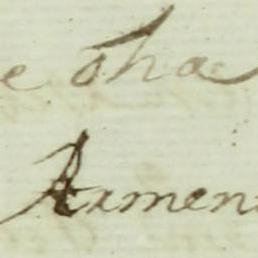 e oha
Armen